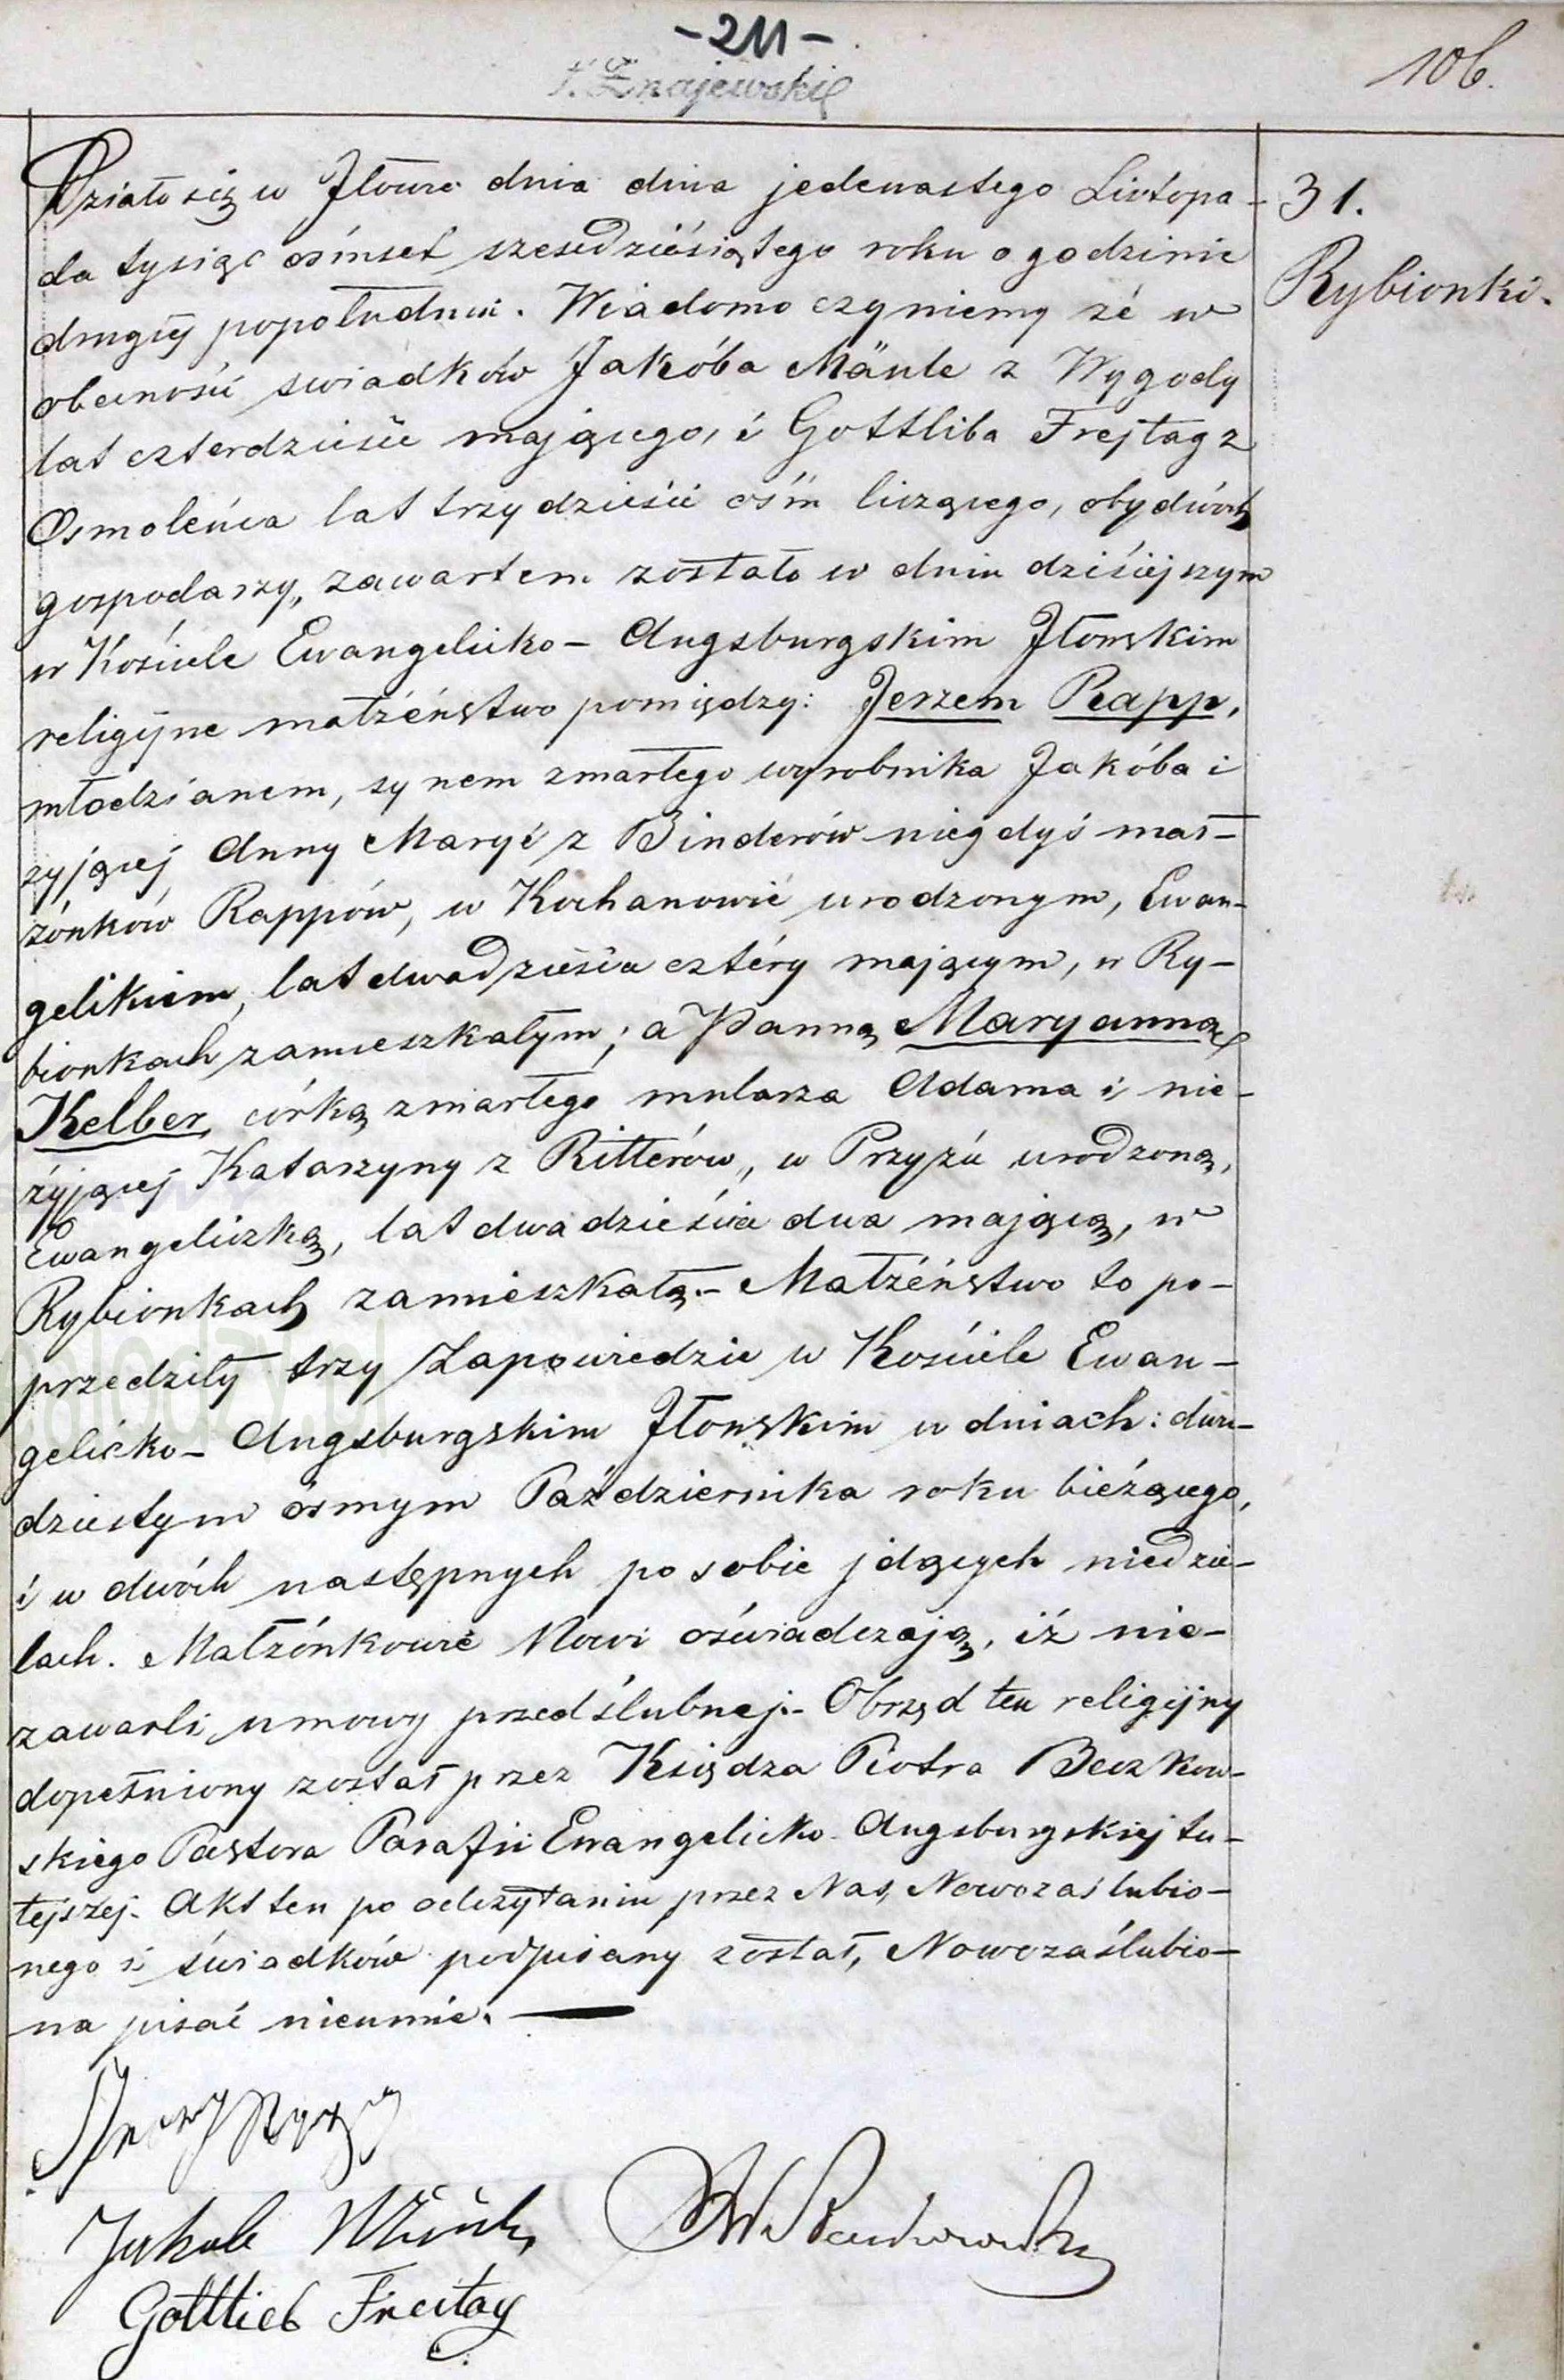 -211-
106.
Działo się w Jłowie dnia dnia jedenastego Listopa-
31.
da tysiąc ośmset sześćdziesiątego roku o godzinie
Rybionki.
drugiéj popołudniu. Wiadomo czyniemy że w
obecności swiadków Jakóba Mäule z Wygody
lat czterdzieście mającego, i Gottliba Frejtag z
Osmoleńca lat trzydzieście ośm liczącego, obydwóch
gospodarzy, zawartem zostało w dniu dziśiejszym
w Kościele Ewangelicko-Augsburgskim Jłowskim
religijne małżéństwo pomiędzy: Jerzem Rapp,
młodzianem, synem zmarłego wyrobnika Jakóba i
żyjącej Anny Maryi z Binderów niegdyś mał-
żónków Rappów, w Kochanowie urodzonym, Ewan-
gelikiem, lat dwadzieścia cztéry mającym, w Ry-
bionkach zamieszkałym; a Panną Maryanną
Kelber, córką zmarłego mularza Adama i nie-
żyjącej Katarzyny z Ritterów, w Przyzu urodzoną,
Ewangeliczką, lat dwadzieścia dwa mającą, w
Rybionkach zamieszkałą.- Małżéństwo to po-
przedziły trzy Zapowiedzie w Kościele Ewan-
gelicko-Augsburgskim Jłowskim w dniach: dwu-
dziestym ósmym Października roku bieżącego,
i w dwóch następnych po sobie jdących niedzie-
lach. Małżónkowie Nowi oświadczają, iż nie-
zawarli umowy przedślubnej.- Obrzęd ten religijny
dopełniony został przez Księdza Piotra Beczkow-
skiego Pastora Parafii Ewangelicko-Augsburgskiej tu-
tejszej. Akt ten po odczytaniu przez Nas, Nowozaślubio-
nego i świadków podpisany został, Nowozaślubio-
na pisać nieumie.
Jakob
Gottlieb Freitag